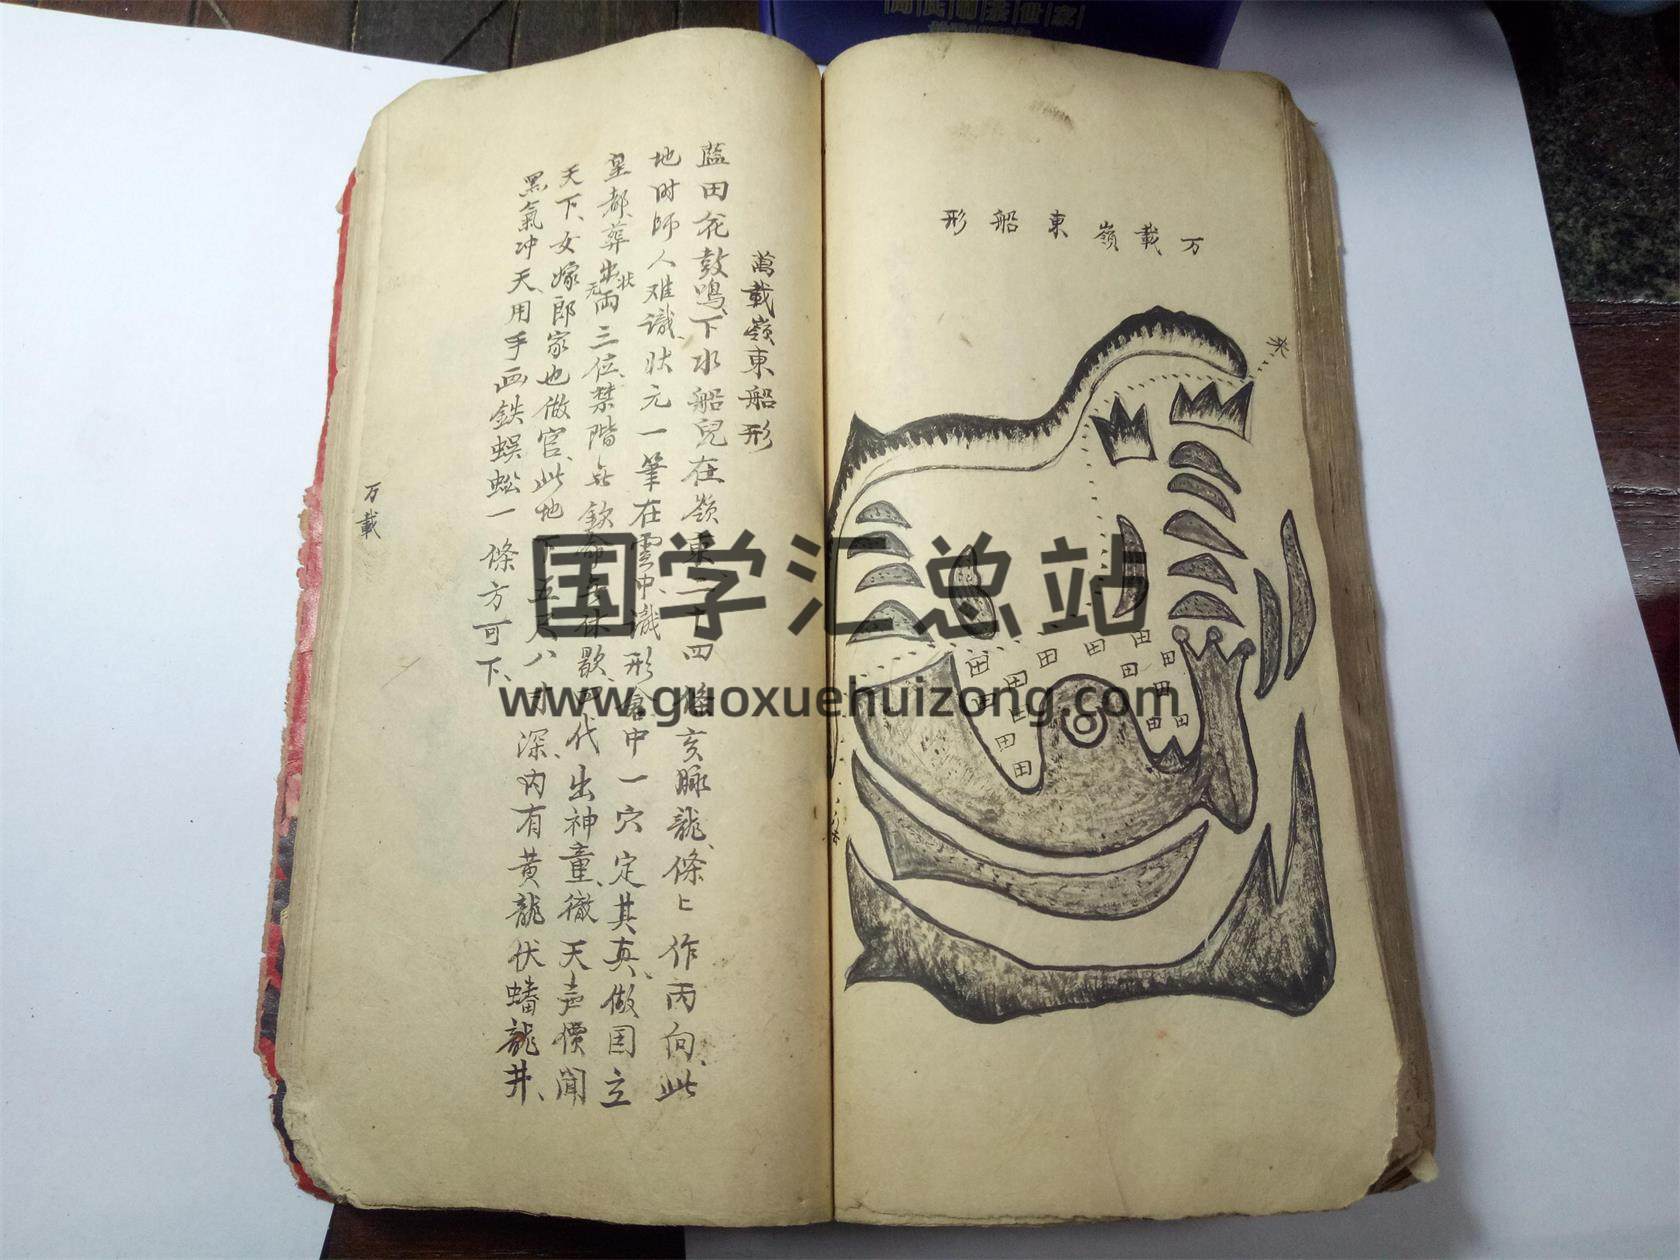 形船東嶺載万
来
田田田田田田田田田田田田田
萬載嶺東船形
藍田花鼓鳴、下水船兒在嶺東二十四條亥脉龍、條上作丙向、此
地时師人难識、状元一筆在雲中、識形倉中一穴定其真、做国立
皇都、葬出状元兩三位、禁階 欽命 休歇、四代出神童、徹天声價聞
天下、女嫁郎家也做官、此地下五尺八寸深、内有黄龍伏蟠龍井、
黑氣冲天、用手画鉄蜈蚣一條方可下、
万載
国学汇总站
www.guoxuehuizong.com